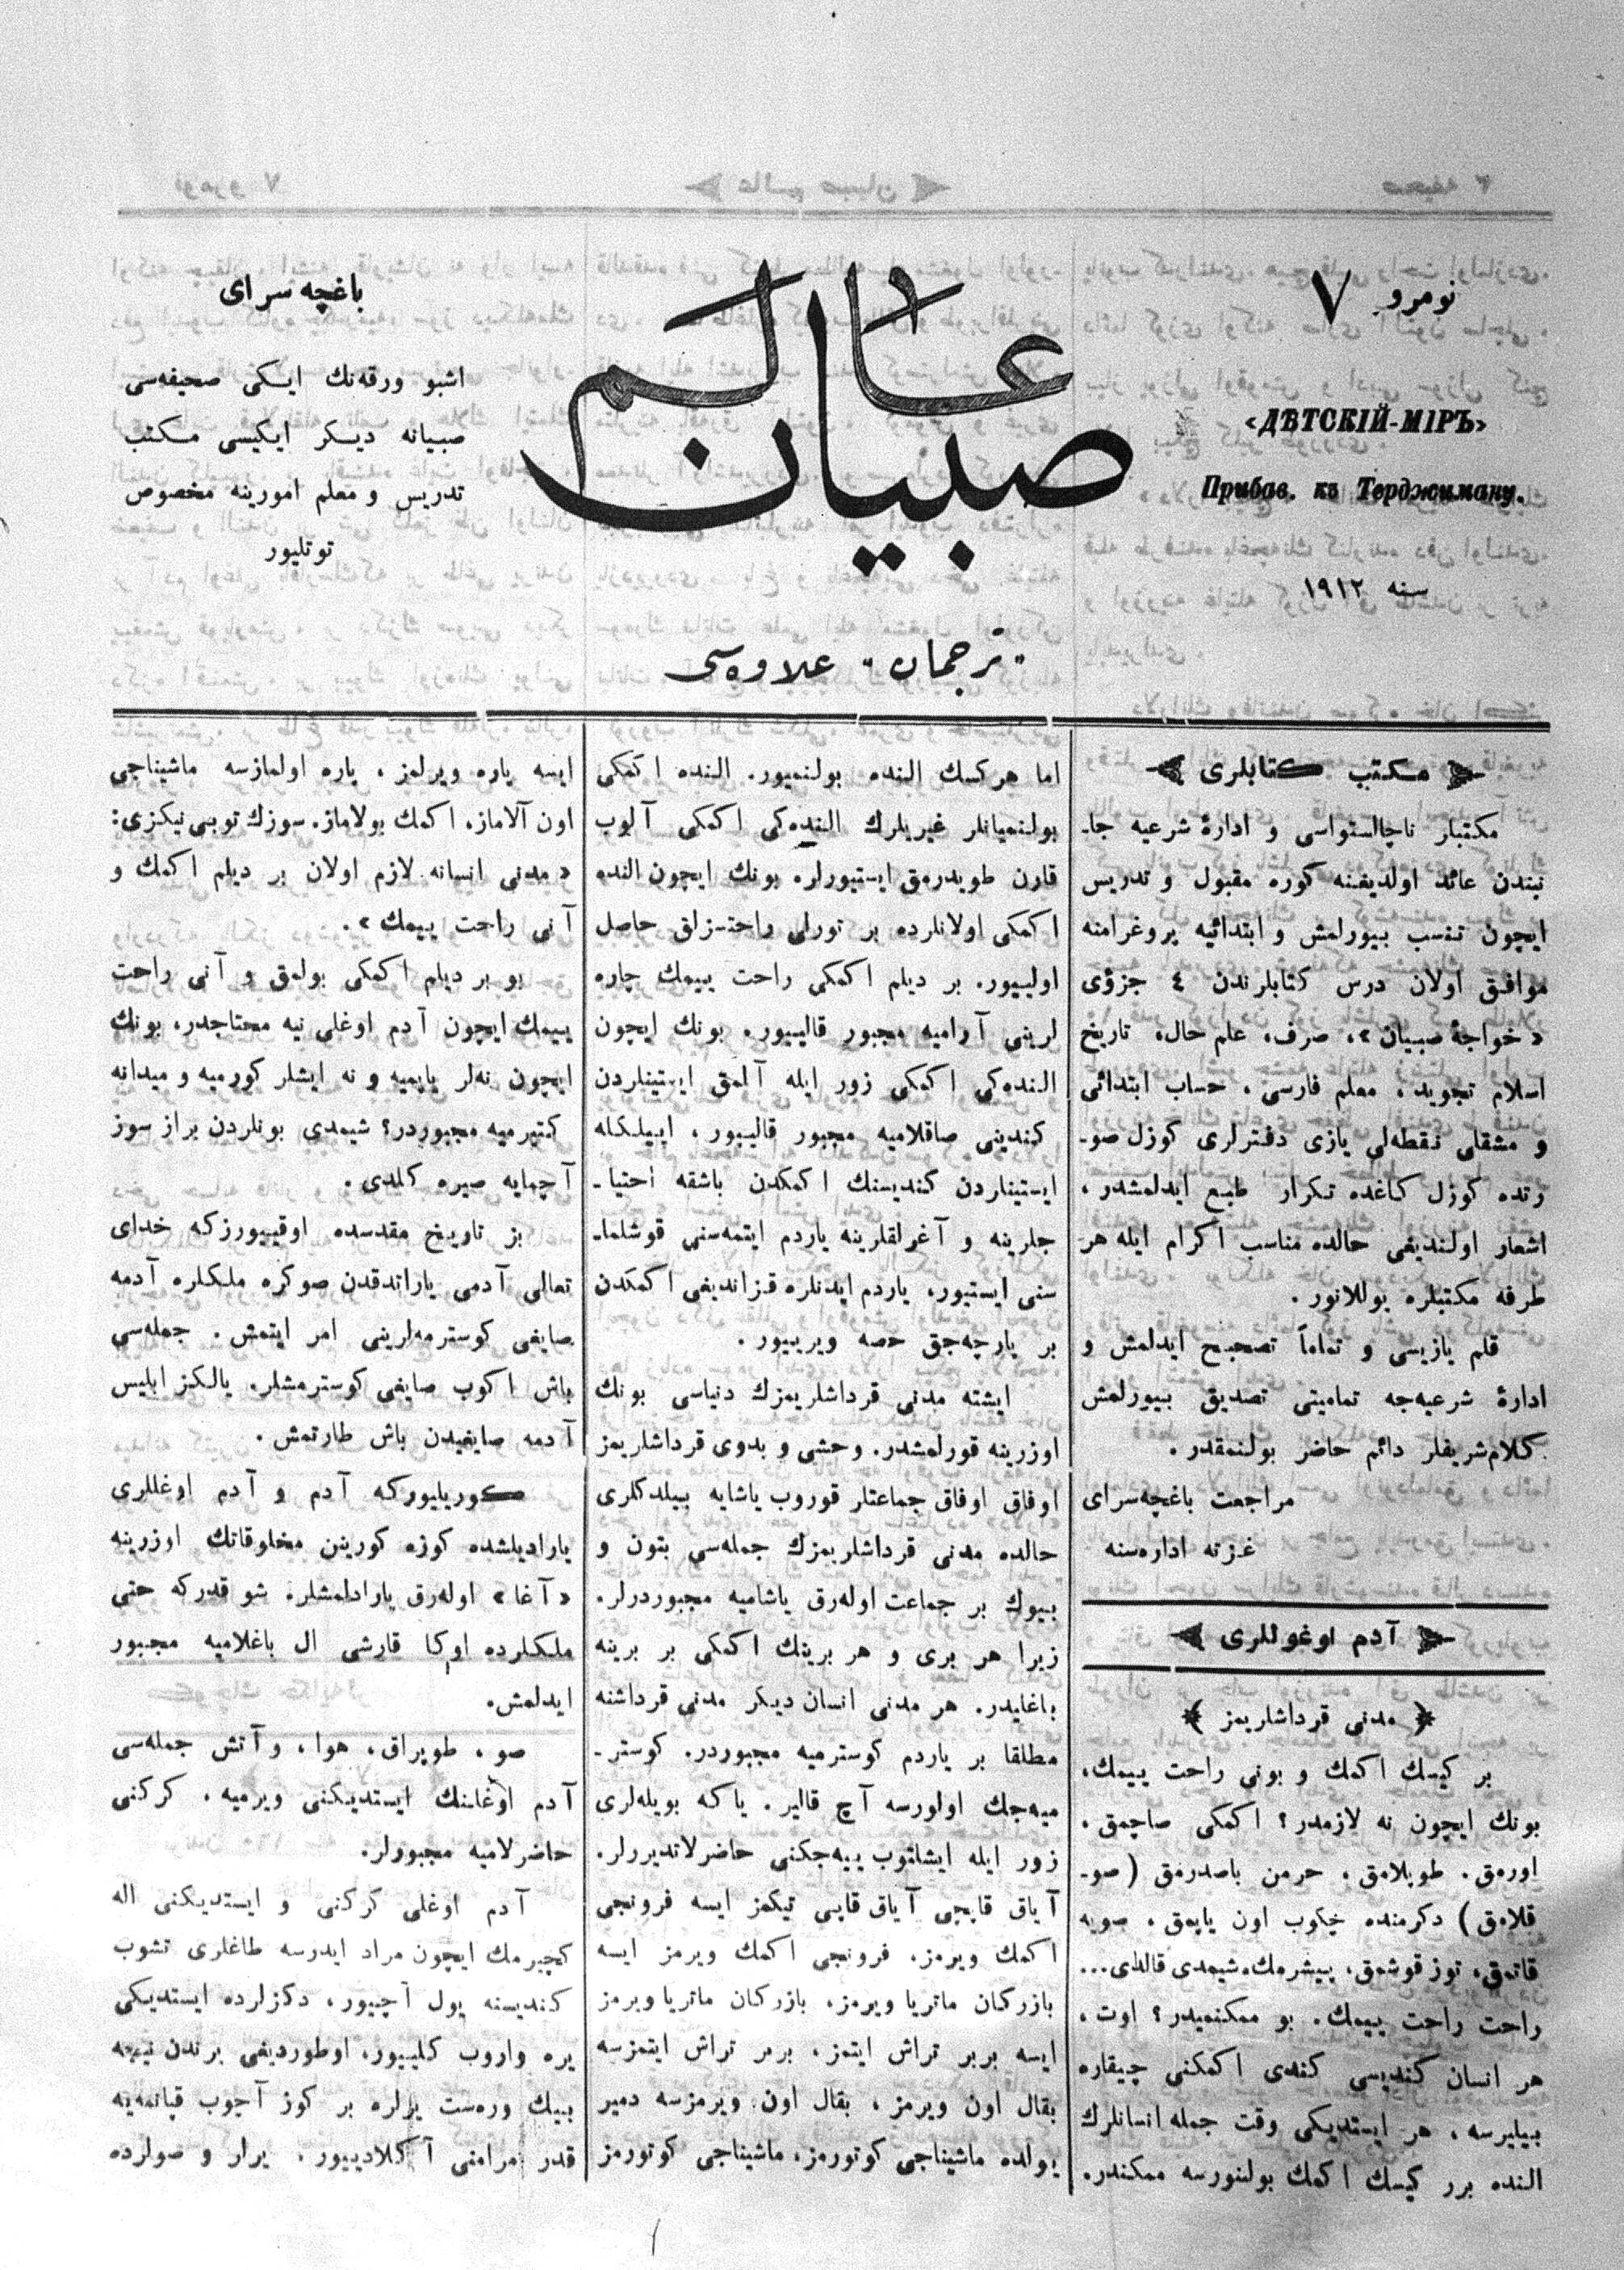 نومرو ۷
«ДѢТСКІЙ-МІРЪ»
Прибав. къ Терджиману.
سنه ۱۹۱۲
عالم صبیان
„ترجمان“ علاوه‌سی
باغچه سرای
اشبو ورقه‌نك ایكی صحیفه‌سی
صبیانه دیكر ایكیسی مكتب
تدریس و معلم امورینه مخصوص
توتلیور
مكتب كتابلری
مكتبلر ناچالستواسی و ادارۀ شرعیه جا-
نبندن عائد اولدیغنه كوره مقبول و تدریس
ایچون تنسب بیورلمش و ابتدائیه پروغرامنه
موافق اولان درس كتابلرندن ٤ جزؤی
«خواجۀ صبیان»، صرف، علم حال، تاریخ
اسلام تجوید، معلم فارسی، حساب ابتدائی
و مشقلی نقطه‌لی یازی دفترلری كوزل صو-
رتده كوزل كاغده تكرار طبع ایدلمشدر،
اشعار اولندیغی حالده مناسب اكرام ایله هر
طرفه مكتبلره یوللانور.
قلم یازیسی و تماماً تصحیح ایدلمش و
ادارۀ شرعیه‌جه تمامیتی تصدیق بیورلمش
كلام‌شریفلر دائم حاضر بولنمقدر.
مراجعت باغچه‌سرای
غزته اداره‌سنه
آدم اوغوللری
﴿ مدنی قرداشلریمز ﴾
بر كیسك اكمك و بونی راحت ییمك،
بونك ایچون نه لازمدر؟ اكمكی صاچمق،
اورمق. طوپلامق، حرمن باصدرمق (صو-
قلامق) دكرمنده چكوب اون یاپمق، صویه
قاتمق، توز قوشمق، پیشرمك، شیمدی قالدی...
راحت راحت ییمك. بو ممكنمیدر؟ اوت،
هر انسان كندیسی كندی اكمكنی چیقاره
بیلیرسه، هر ایستدیكی وقت جمله انسانلرك
النده برر كیسك اكمك بولنورسه ممكندر.
اما هركسك النده بولنمیور. النده اكمكی
بولنمیانلر غیریلرك النده‌كی اكمكی آلوب
قارن طویدرمق ایستیورلر. بونك ایچون النده
اكمكی اولانلرده بر تورلی راحتسزلق حاصل
اولییور. بر دیلم اكمكی راحت ییمك چاره
لرینی آرامیه مجبور قالییور. بونك ایچون
النده‌كی اكمكی زور ایله آلمق ایستینلردن
كندینی صاقلامیه مجبور قالییور، اییلكله
ایستینلردن كندیسنك اكمكدن باشقه احتیا-
جلرینه و آغرلقلرینه یاردم ایتمه‌سنی قوشلما-
سنی ایستیور، یاردم ایدنلره قزاندیغی اكمكدن
بر پارچه‌جق حصه ویرییور.
ایشته مدنی قرداشلریمزك دنیاسی بونك
اوزرینه قورلمشدر. وحشی و بدوی قرداشلریمز
اوفاق اوفاق جماعتلر قوروب یاشایه بیلدكلری
حالده مدنی قرداشلریمزك جمله‌سی بتون و
بیوك بر جماعت اوله‌رق یاشامیه مجبوردرلر.
زیرا هر بری و هر برینك اكمكی بر برینه
باغلیدر. هر مدنی انسان دیكر مدنی قرداشنه
مطلقا بر یاردم كوسترمیه مجبوردر. كوستر-
میه‌جك اولورسه آچ قالیر. یاكه بویله‌لری
زور ایله ایشلتوب ییه‌جكنی حاضرلاتدیررلر.
آیاق قابجی آیاق قابی تیكمز ایسه فرونجی
اكمك ویرمز. فرونجی اكمك ویرمز ایسه
بازركان ماتریا ویرمز، بازركان ماتریا ویرمز
ایسه بربر تراش ایتمز، بربر تراش ایتمزسه
بقال اون ویرمز، بقال اون ویرمزسه دمیر
یولده ماشیناجی كوتورمز، ماشیناجی كوتورمز
ایسه پاره ویرلمز، پاره اولمازسه ماشیناجی
اون آلاماز، اكمك بولاماز. سوزك توبی نیكزی:
«مدنی انسانه لازم اولان بر دیلم اكمك و
آنی راحت ییمك».
بو بر دیلم اكمكی بولمق و آنی راحت
ییمك ایچون آدم اوغلی نیه محتاجدر، بونك
ایچون نه‌لر یاپمیه و نه ایشلر كورمیه و میدانه
كتیرمیه مجبوردر؟ شیمدی بونلردن براز سوز
آچمایه صیره كلدی.
بز تاریخ مقدسده اوقییورزكه خدای
تعالی آدمی یاراتدقدن صوكره ملكلره آدمه
صایغی كوسترمه‌لرینی امر ایتمش. جمله‌سی
باش اكوب صایغی كوسترمشلر. یالكز ابلیس
آدمه صایغیدن باش طارتمش.
كوریلیوركه آدم و آدم اوغللری
یارادیلشده كوزه كورینن مخلوقاتك اوزرینه
«آغا» اوله‌رق یارادلمشلر. شو قدركه حتی
ملكلرده اوكا قارشی ال باغلامیه مجبور
ایدلمش.
صو، طوپراق، هوا، و آتش جمله‌سی
آدم اوغلنك ایستدیكنی ویرمیه، كركنی
حاضرلامیه مجبورلر.
آدم اوغلی كركنی و ایستدیكنی اله
كچیرمك ایچون مراد ایدرسه طاغلری تشوب
كندیسنه یول آچییور، دكزلرده ایستدیكی
یره واروب كلییور، اوطوردیغی یرندن نیچه
بیك ورست یرلره بر كوز آچوب قپانمه‌یه
قدر مرامنی آكلادییور. یرلر و صولرده